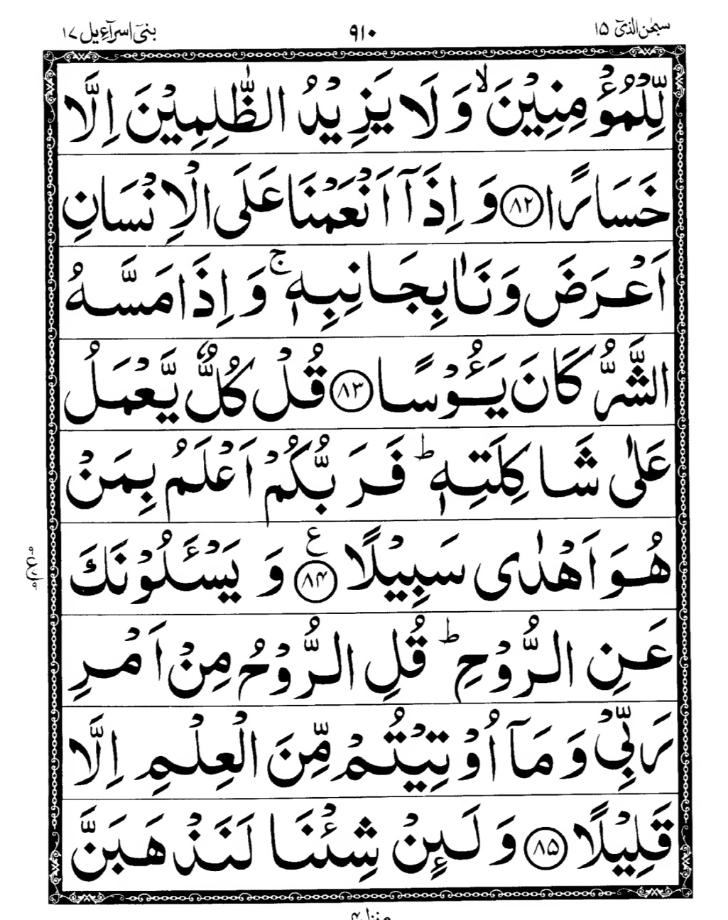 سبحٰن الذیٓ ۱۵ ۹۱۰ بنیٓ اسرآءیل ۱۷
لِّلْمُؤْمِنِيْنَ ۙ وَلَا يَزِيْدُ الظّٰلِمِيْنَ اِلَّا
خَسَارًا ۝۸۲ وَ اِذَاۤ اَنْعَمْنَا عَلَى الْاِنْسَانِ
اَعْرَضَ وَنَاٰ بِجَانِبِهٖ ۚ وَ اِذَا مَسَّهُ
الشَّرُّ كَانَ يَـُٔوْسًا ۝۸۳ قُلْ كُلٌّ يَّعْمَلُ
عَلٰى شَاكِلَتِهٖ ؕ فَرَبُّكُمْ اَعْلَمُ بِمَنْ
هُوَ اَهْدٰى سَبِيْلًا ۝۸۴ ع وَ يَسْـَٔلُوْنَكَ
عَنِ الرُّوْحِ ؕ قُلِ الرُّوْحُ مِنْ اَمْرِ
رَبِّيْ وَ مَاۤ اُوْتِيْتُمْ مِّنَ الْعِلْمِ اِلَّا
قَلِيْلًا ۝۸۵ وَ لَىِٕنْ شِئْنَا لَنَذْهَبَنَّ